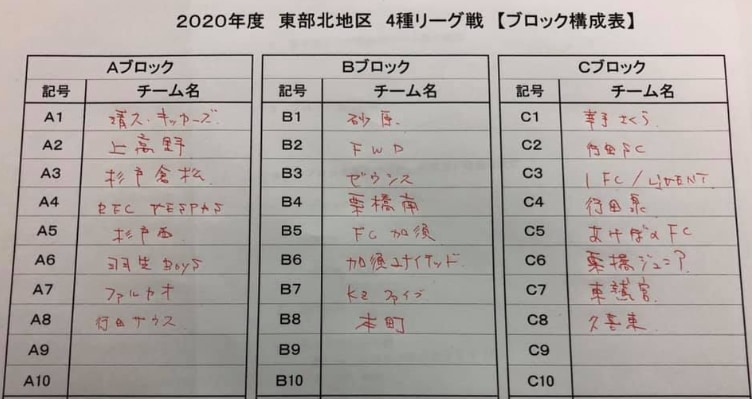 2020年度 東部北地区 4種リーグ戦 【ブロック構成表】
Aブロック Bブロック Cブロック
記号 チーム名 記号 チーム名 記号 チーム名
A1 キッカーズ B1 砂原 C1 幸手さくら
A2 上高野 B2 FWD C2 行田FC
A3 杉戸倉松 B3 ゼウシス C3 1FC/
A4 B4 栗橋南 C4 行田泉
A5 杉戸西 B5 FC加須 C5 あけぼのFC
A6 羽生Boys B6 加須ユナイテッド C6 栗橋ジュニア
A7 ファルカオ B7 KZファイブ C7 東鷲宮
A8 行田サウス B8 本町 C8 久喜東
A9 B9 C9
A10 B10 C10